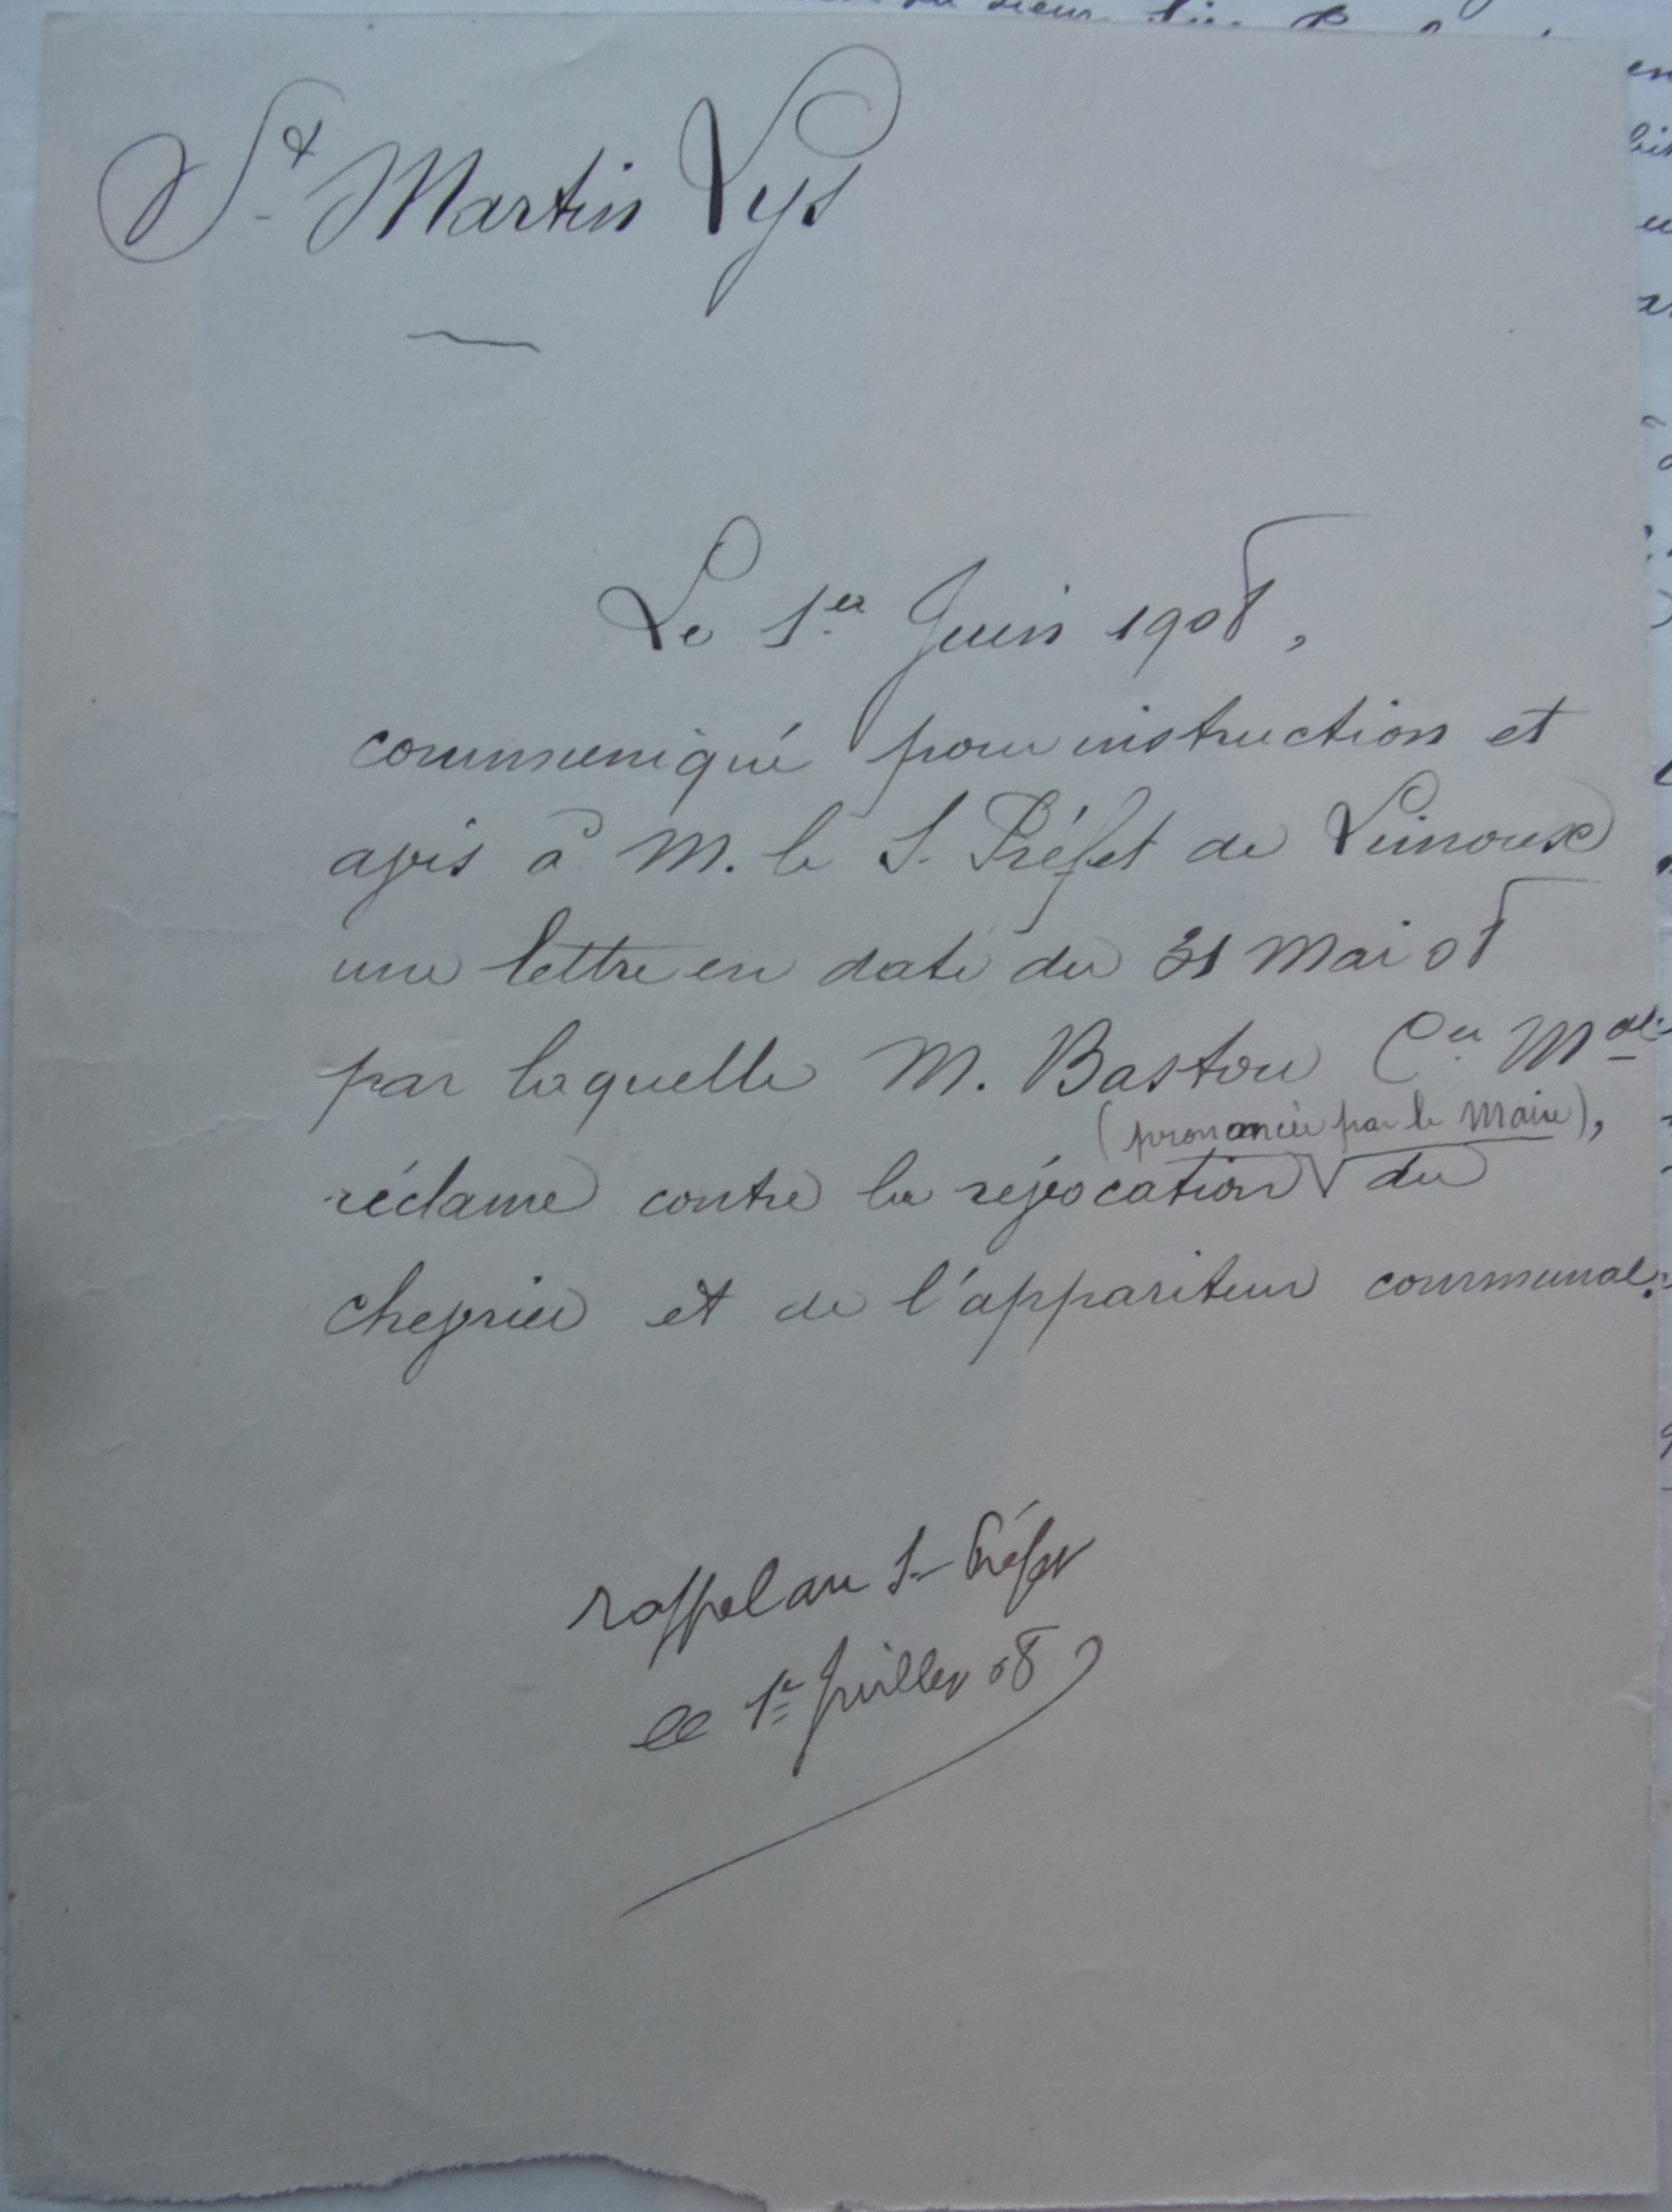 St Martin Lys
Le 1er Juin 1908,
communiqué pour instruction et
avis à M. le S. Préfet de Limoux
une lettre en date du 31 Mai 08
par laquelle M. Bastou Cer Mal
(prononcée par le Maire),
réclame contre la révocation √ du
chevrier et de l'appariteur communal.
rappel au S-Préfet
le 1er Juillet 08